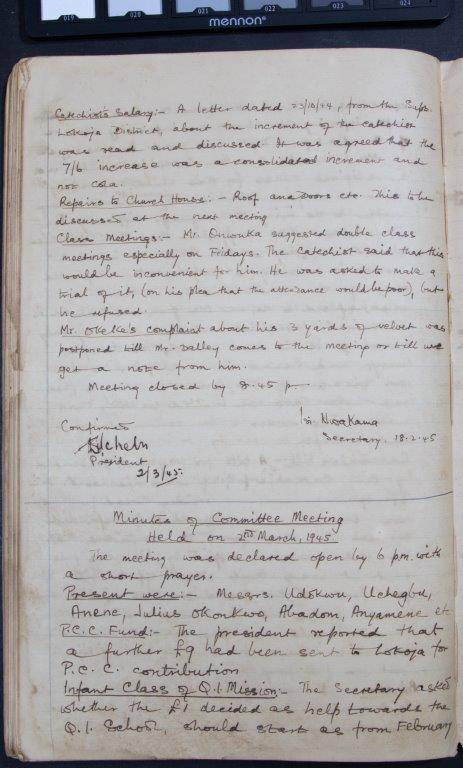 019
021
022
023
024
mennon
Catechist's Salary:- A letter dated 23/10/44, from the Supt.
Lokoja District, about the increment of the catechist
was read and discussed. It was agreed that the
7/6 increase was a consolidated increment and
not cola.
Repairs to Church House:- Roof and Doors etc. This to be
discussed at the next meeting
Class Meetings:- Mr. Onwuka suggested double class
meetings especially on Fridays. The catechist said that this
would be inconvenient for him. He was asked to make a
trial of it, (on his plea that the attendance would be poor), but
he refused.
Mr. Okeke's complaint about his 3 yards of velvet was
postponed till Mr. Dalley comes to the meeting or till we
get a note from him.
Meeting closed by 8.45 p.
Nwakama
Confirmed
Secretary, 18.2.45
President
2/3/45.
Minutes of Committee Meeting
Held on 2nd March, 1945
The meeting was declared open by 6 p.m. with
a short prayer.
Present were:- Messrs. Udokwu, Uchegbu,
Anene, Julius Okonkwo, Abadom, Anyamene etc
P.C.C. Fund:- The president reported that
a further £9 had been sent to Lokoja for
P.C.C. contribution
Infant Class of Q.I. Mission:- The Secretary asked
whether the £1 decided as help towards the
Q.I. School, should start as from February